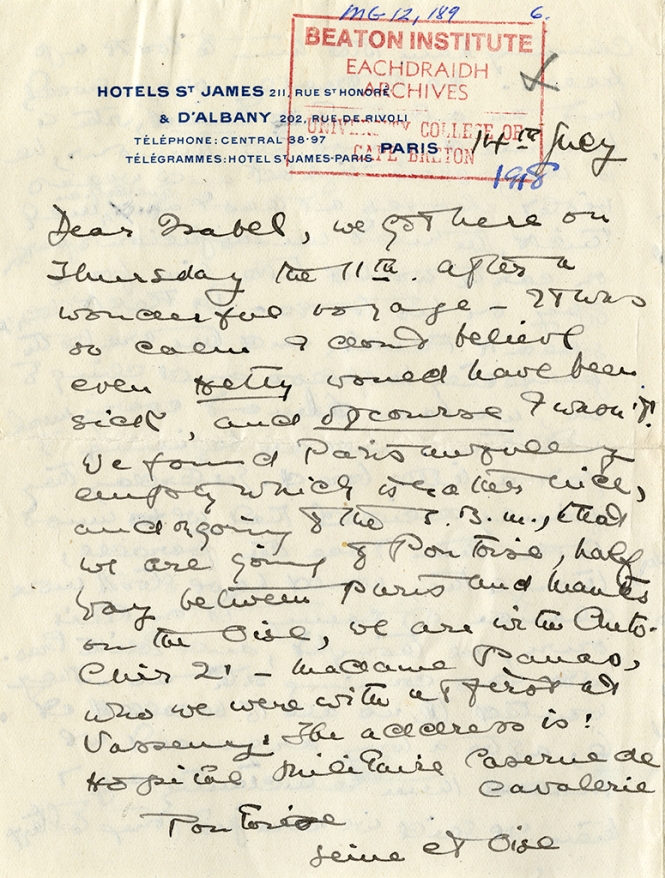 MG 12, 189 6.
BEATON INSTITUTE
EACHDRAIDH
ARCHIVES
UNIVERSITY COLLEGE OF
CAPE BRETON
HOTELS ST JAMES 211, RUE ST HONORÉ
& D'ALBANY 202, RUE DE RIVOLI
TÉLÉPHONE: CENTRAL 38-97
TÉLÉGRAMMES: HOTEL ST JAMES-PARIS PARIS 14th July
1918
Dear Isabel, we got here on
Thursday the 11th. after a
wonderful voyage - It was
so calm I don't believe
even Hetty would have been
sick, and of course I wasn't!
We found Paris awfully
empty which is rather nice,
and going to the S. B. M., that
we are going to Pontoise, half
way between Paris and Mantes
on the Oise, we are with Auto-
Chir 21 - Madame Panas,
who we were with at first at
Vasseny. The address is!
Hospital Militaire Caserne de
Cavalerie
Pontoise
Seine et Oise